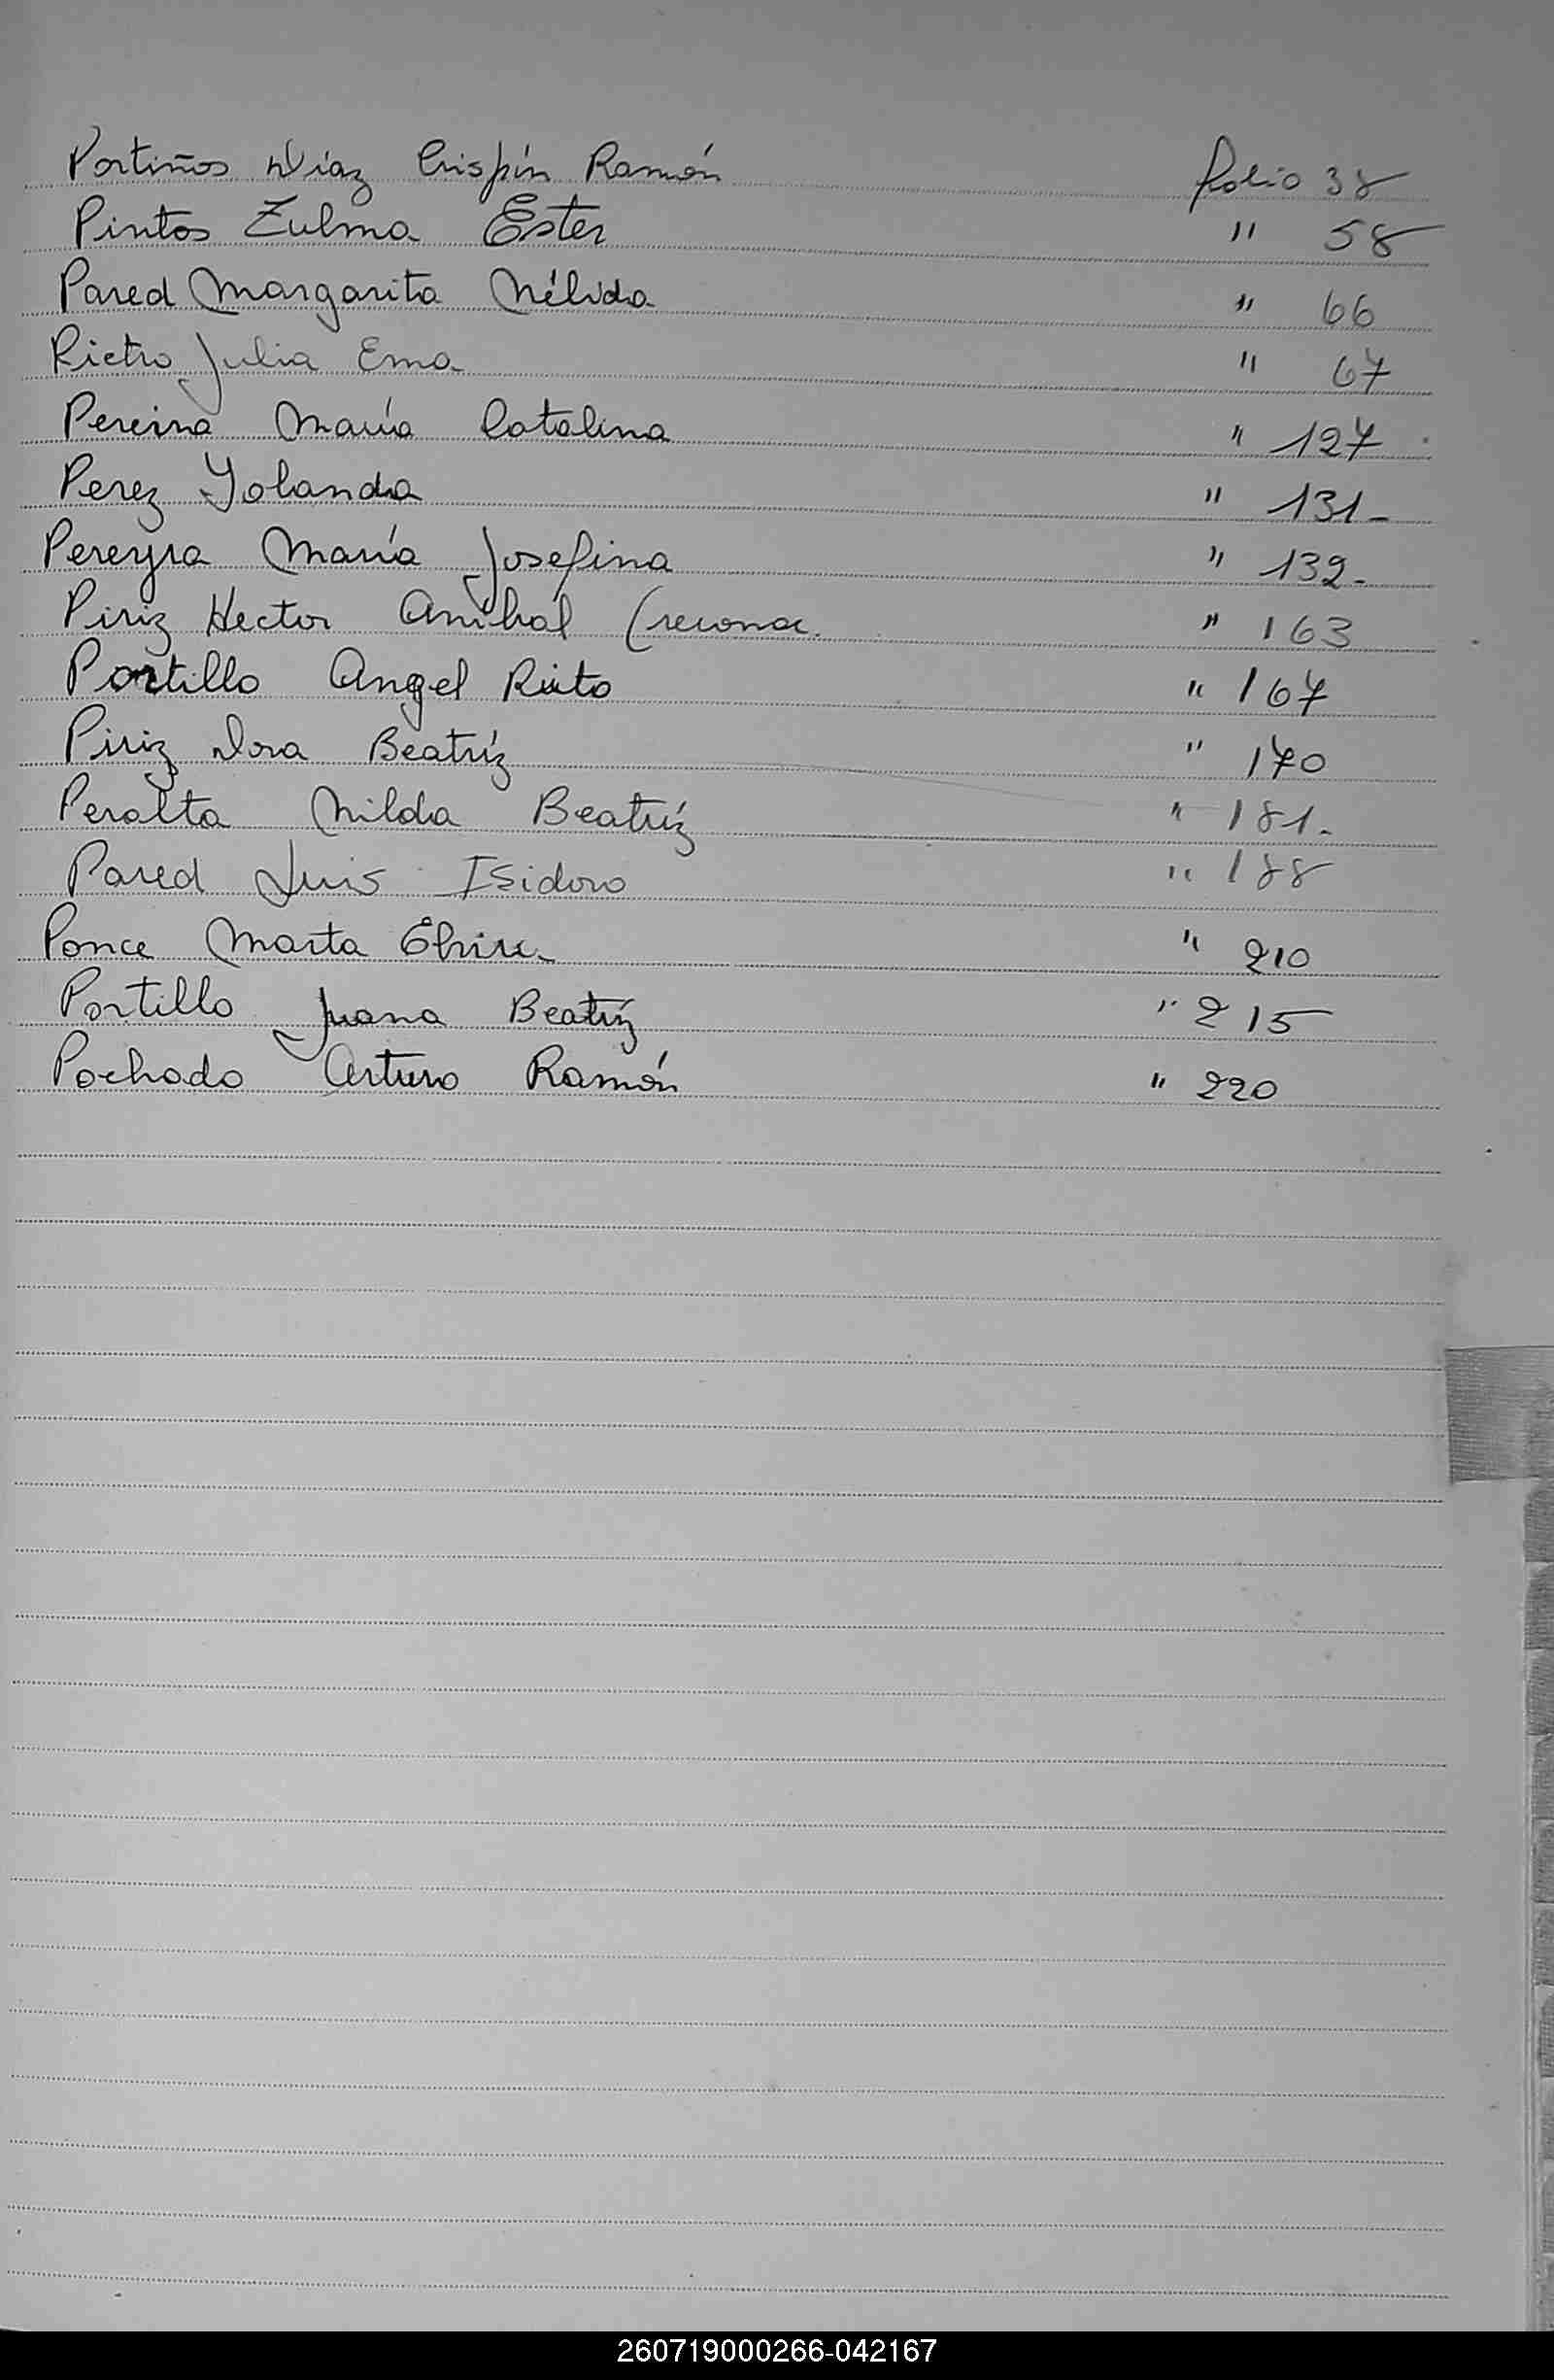 Portiños Díaz Crispín Ramón folio 38
Pintos Zulma Ester " 58
Pared Margarita Nélida " 66
Pietro Julia Ema " 67
Pereira María Catalina " 127
Perez Yolanda " 131-
Pereyra María Josefina " 132-
Piriz Hector Anibal (reconoc. " 163
Portillo Angel Rito " 167
Piriz Dora Beatríz " 170
Peralta Nilda Beatríz " 181-
Pared Luis Isidoro " 188
Ponce Marta Elvira " 210
Portillo Juana Beatríz " 215
Pochado Arturo Ramón " 220
260719000266-042167